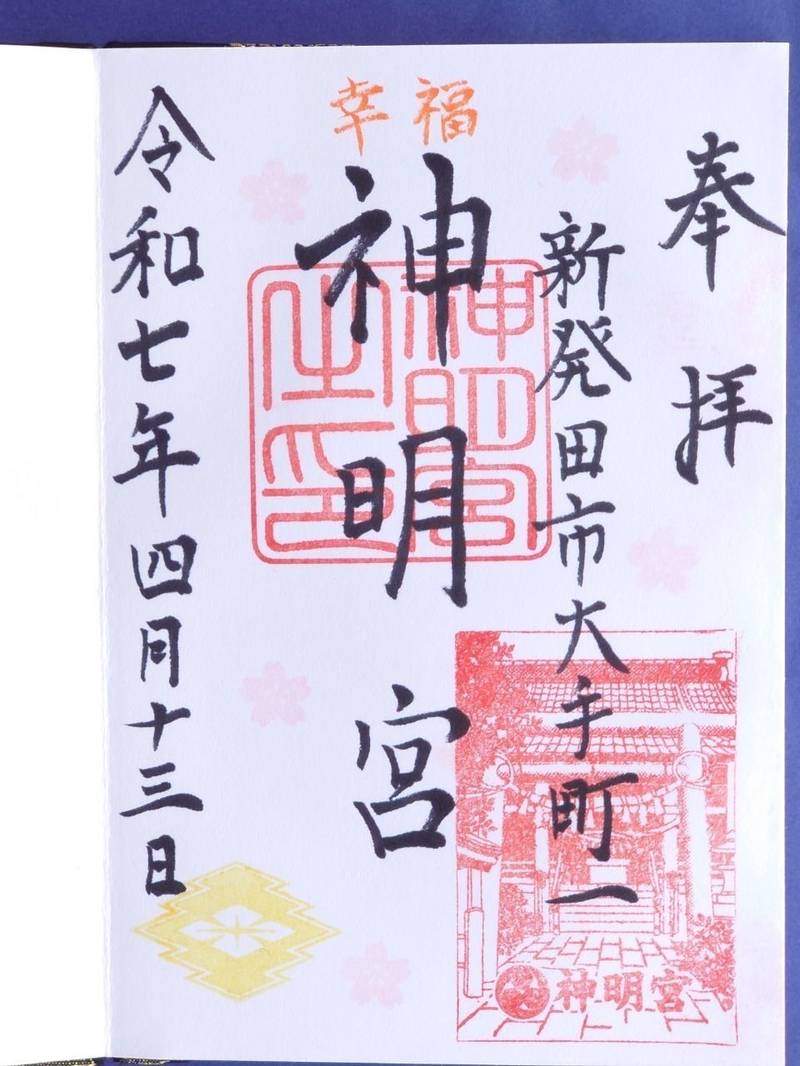 奉拝
新発田市大手町一
幸福
神明宮
神明宮之印
神明宮
令和七年四月十三日